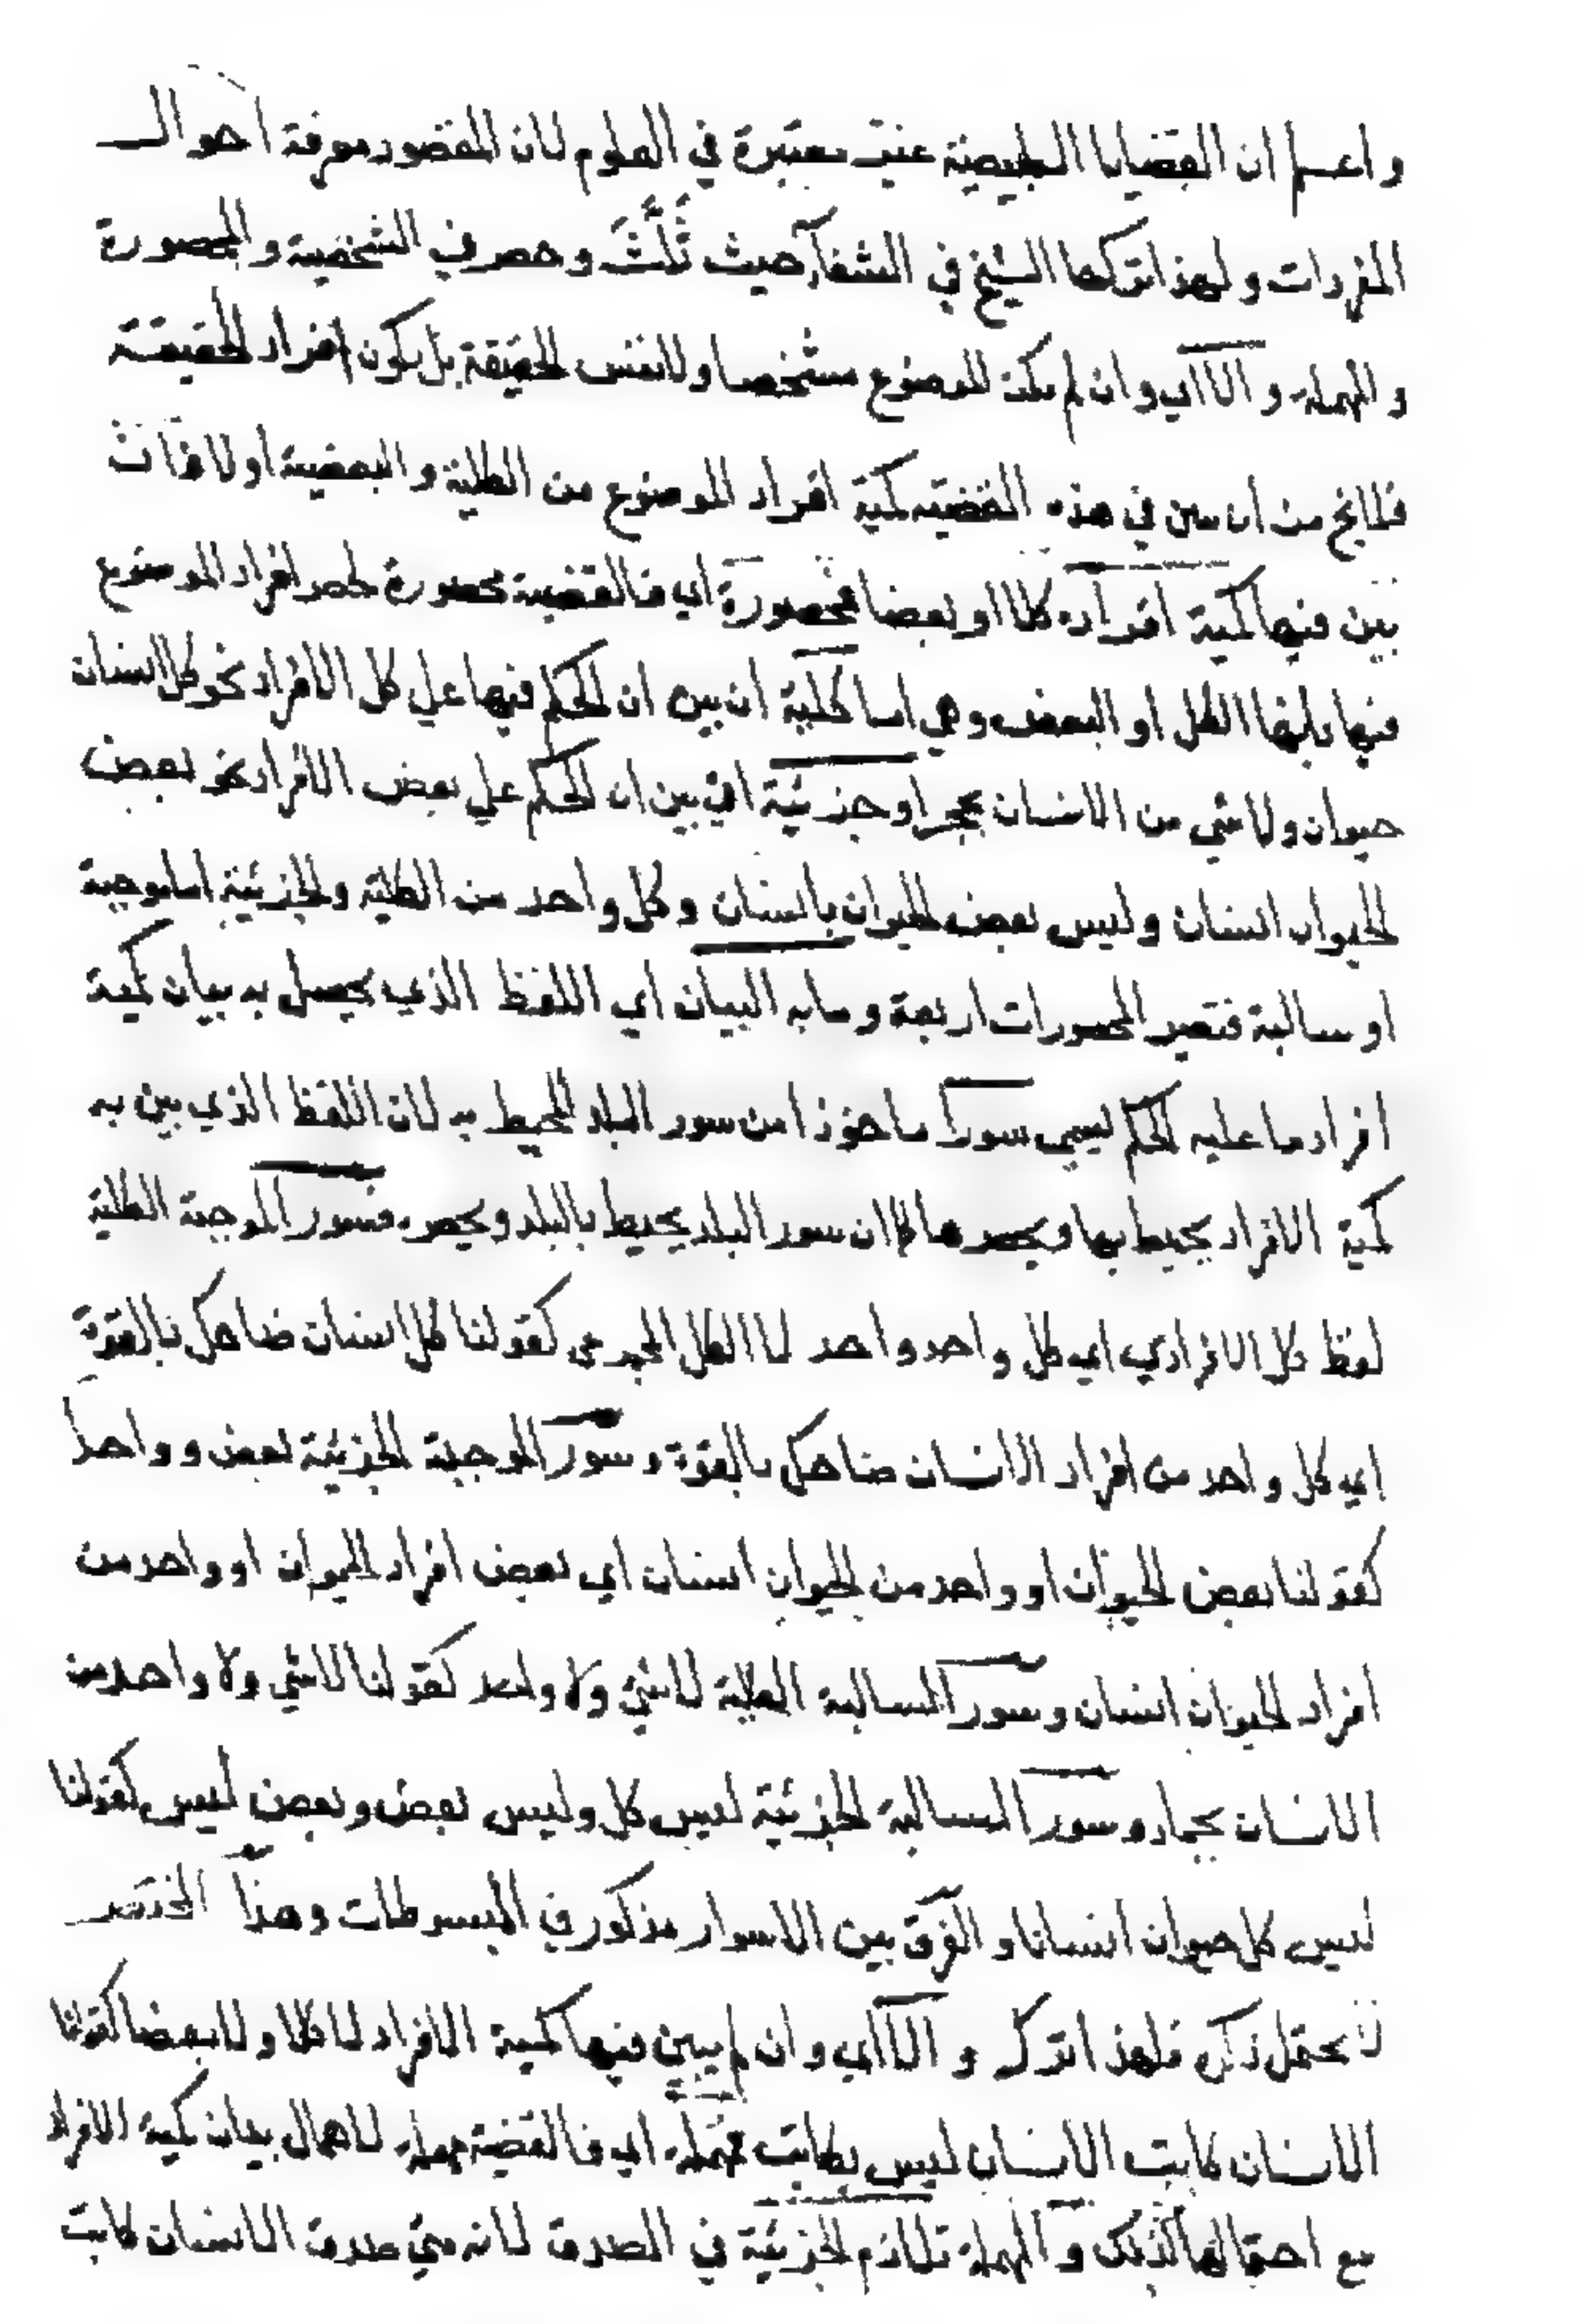 واعلم ان القضايا الطبيعية غير معتبرة في العلوم لان المقصود معرفة احوال
المفردات ولهذا تركها الشيخ في الشفا حيث ثلث وحصر في الشخصية والمحصورة
والمهملة والا اي وان لم يكن الموضوع مشخصا ولا نفس الحقيقة بل يكون افراد الحقيقة
فلا يخ من ان يبين في هذه القضية كمية افراد الموضوع من الكلية والبعضية اولا فان
بين فيها كمية افراده كلا او بعضا فمحصورة اي فالقضية محصورة لحصر افراد الموضوع
فيها بلفظ الكل او البعض وهي اما كلية ان بين ان الحكم فيها علي كل الافراد نحو كل انسان
حيوان ولا شي من الانسان بحجر او جزئية ان بين ان الحكم علي بعض الافراد نحو بعض
الحيوان انسان وليس بعض الحيوان بانسان وكل واحد من الكلية والجزئية اما موجبة
او سالبة فتصير المحصورات اربعة وما به البيان اي اللفظ الذي يحصل به بيان كمية
افراد ما عليه الحكم يسمي سورا ماخوذا من سور البلد المحيط به لان اللفظ الذي بين به
كمية الافراد يحيط بها ويحصرها كما ان سور البلد يحيط بالبلد ويحصره فسور الموجبة الكلية
لفظ كل الافرادي اي كل واحد واحد لا الكل المجموعي كقولنا كل انسان ضاحك بالقوة
اي كل واحد من افراد الانسان ضاحك بالقوة وسور الموجبة الجزئية بعض وواحد
كقولنا بعض الحيوان او واحد من الحيوان انسان اي بعض افراد الحيوان او واحد من
افراد الحيوان انسان وسور السالبة الكلية لا شي ولا واحد كقولنا لا شي ولا واحد من
الانسان بجماد وسور السالبة الجزئية ليس كل وليس بعض وبعض ليس كقولنا
ليس كل حيوان انسانا والفرق بين الاسوار مذكور في المبسوطات وهذا المختصر
لا يحتمل ذكره فلهذا ترك والا اي وان لم يبين فيها كمية الافراد لا كلا ولا بعضا كقولنا
الانسان كاتب الانسان ليس بكاتب فمهملة اي فالقضية مهملة لاهمال بيان كمية الافراد
مع احتمالها لذلك والمهملة تلازم الجزئية في الصدق لانه متي صدق الانسان كاتب